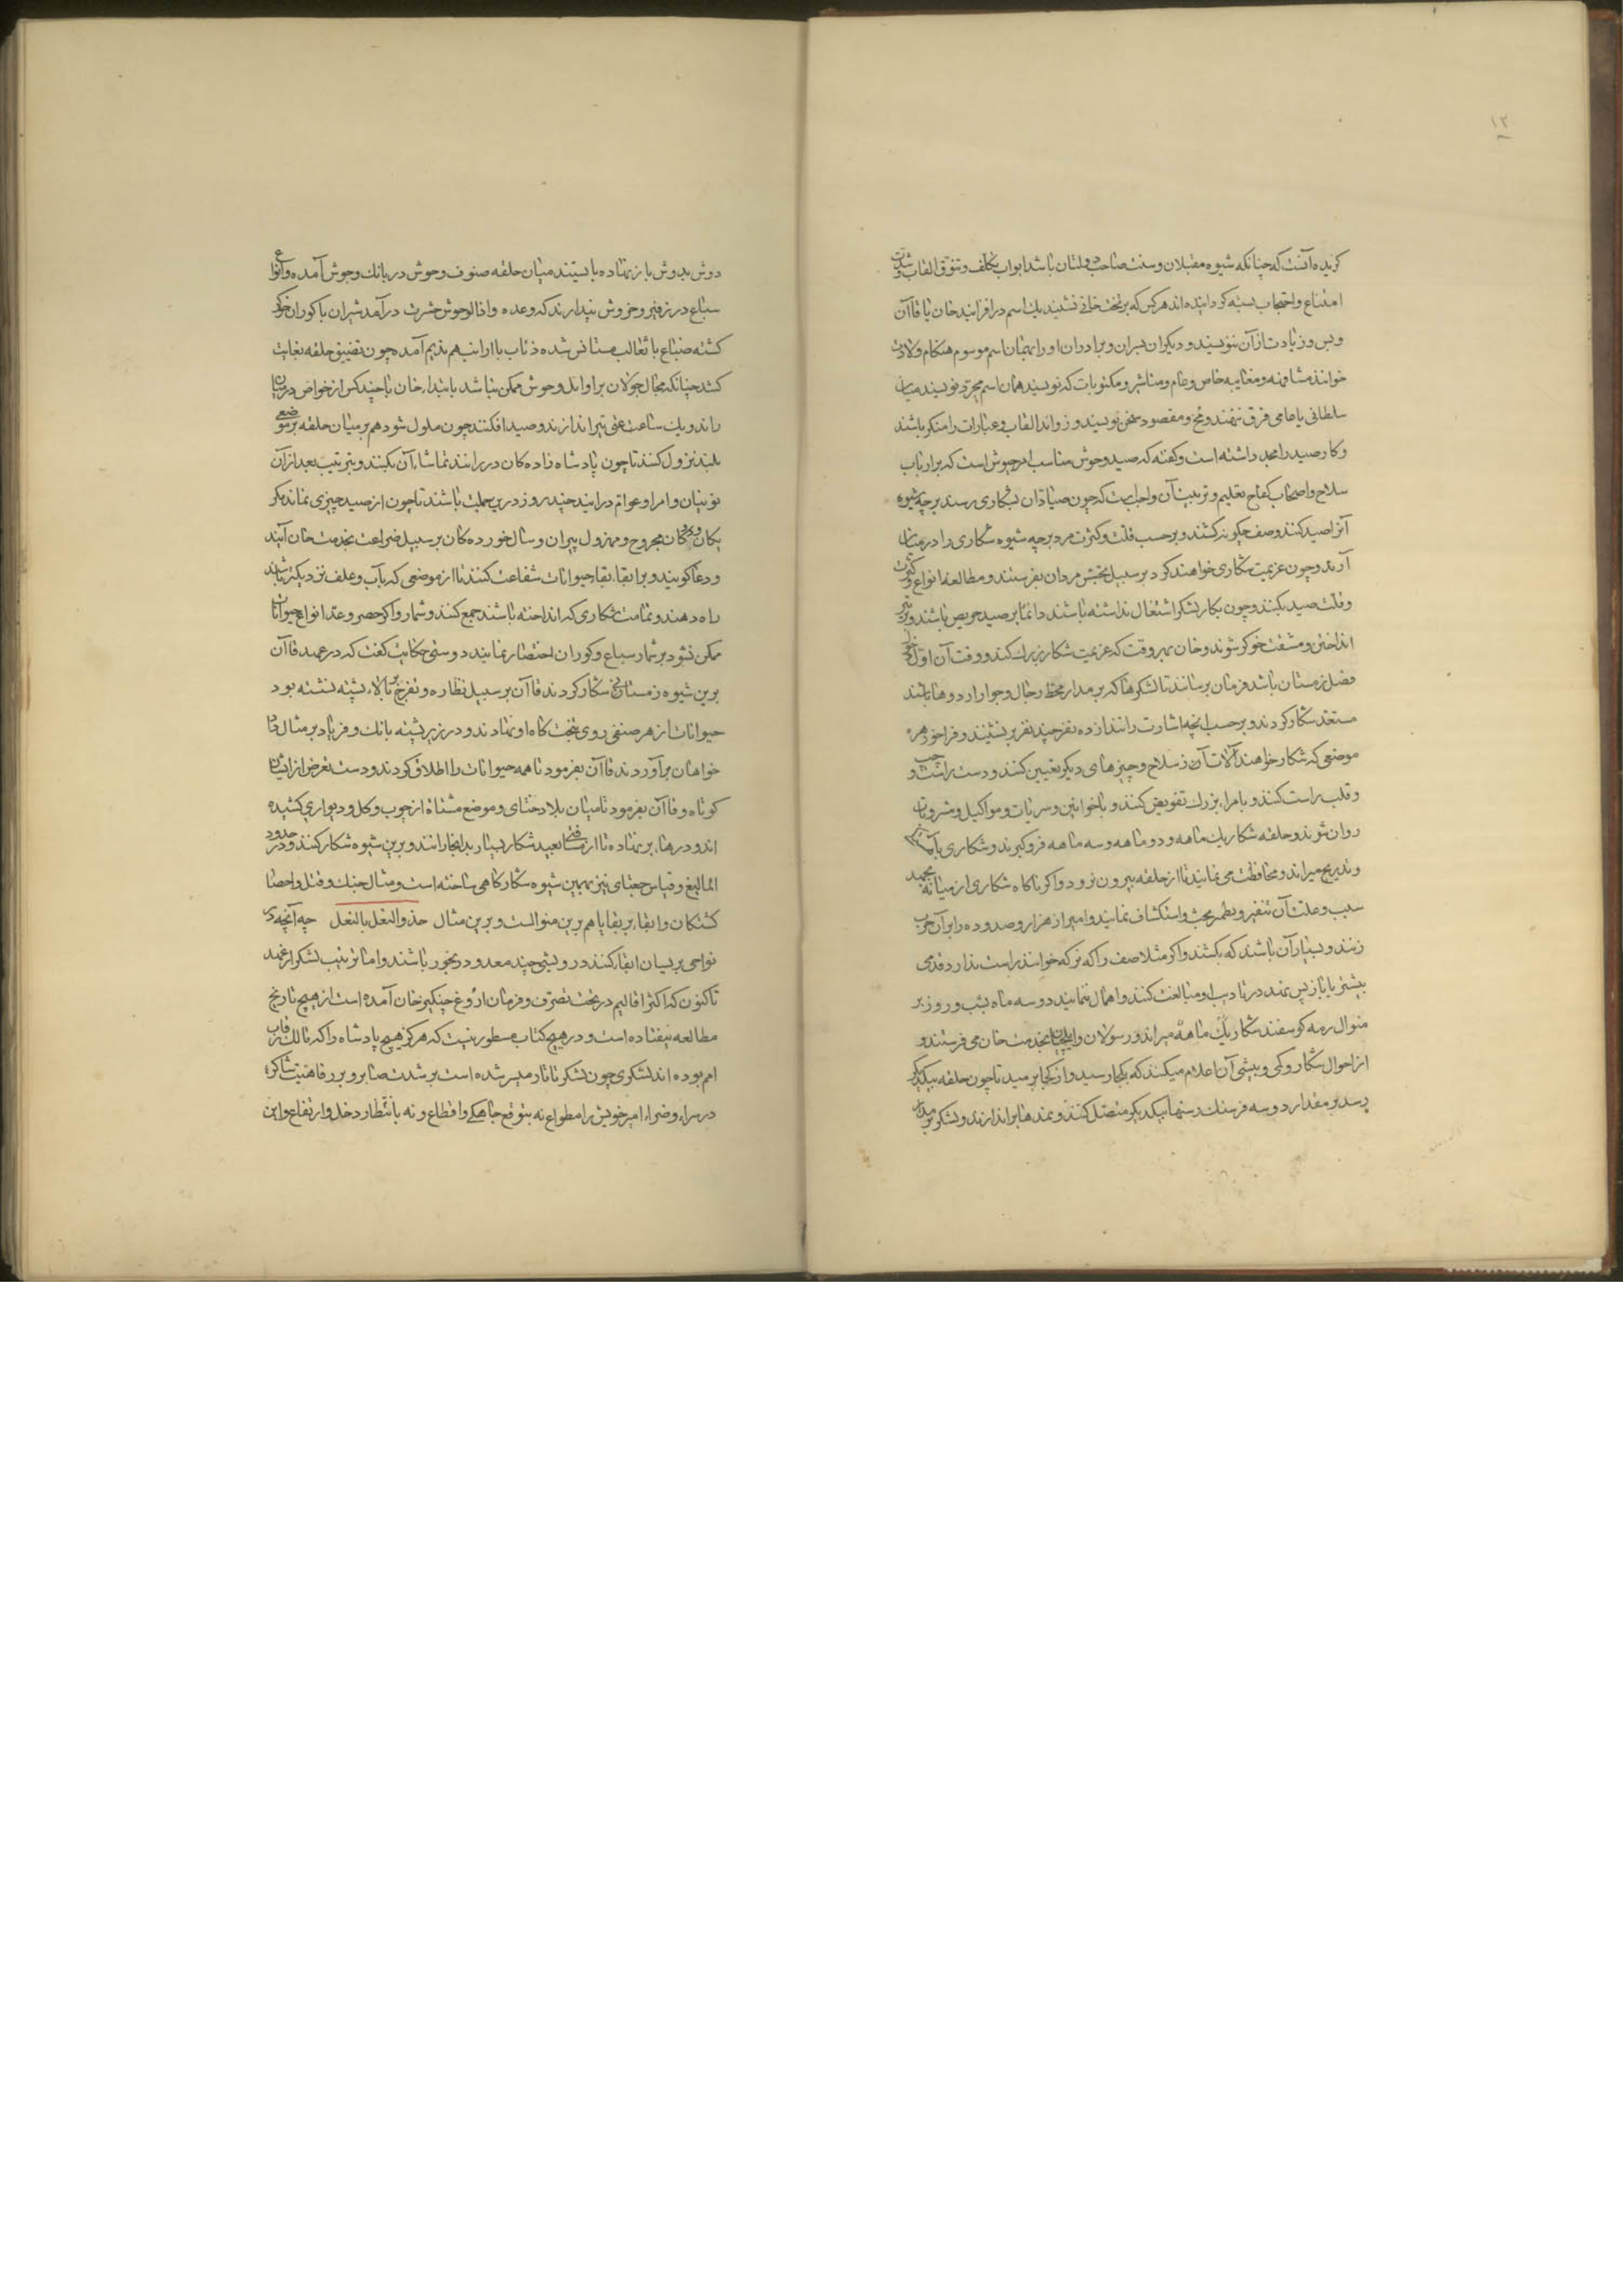 ۱۲
گزیده آنست که چنانکه شیوه مقبلان و سنت صاحب دولتان باشد ابواب تکلف و تنوق القاب و شدت
امتناع و احتجاب بسته گردانیده‌اند هرکس که بر تخت خانی نشیند یک اسم درافزایند خان یا قاآن
و بس و زیادت از آن ننویسند و دیگران پسران و برادران او را بهمان اسم موسوم هنگام ولادت
خوانند مشافهة و مغایبه خاص و عام و مناشر و مکتوبات که نویسند همان اسم مجرد نویسند میان
سلطانی با عامی فرق ننهند و مخ و مقصود سخن نویسند و زواید القاب و عبارات را منکر باشند
و کار صید را مجد داشته است و گفته که صید وحوش مناسب امر جیوش است که بر ارباب
سلاح و اصحاب کفاح تعلیم و تربیت آن واجبست که چون صیادان بشکاری رسند بر چه شیوه
آنرا صید کنند و صف چگونه کشند و بر حسب قلت و کثرت مرد بر چه شیوه شکاری را در میان
آرند و چون عزیمت شکاری خواهند کرد بر سبیل تجسس مردان بفرستند و مطالعه انواع و کثرت
و قلت صید بکنند و چون بکار لشکر اشتغال نداشته باشند دائما بر صید حریص باشند و بر تیر
انداختن و مشقت خوگر شوند و خان بهر وقت که عزیمت شکار بزرک کند و وقت آن اول
فصل زمستان باشد فرمان برسانند تا لشکرها که بر مدار محط رحال و جوار اردوها باشند
مستعد شکار گردند و بر حسب آنچه اشارت رانند از ده نفر چند نفر برنشینند و فراخور هر
موضعی که شکار خواهند آلات آن از سلاح و چیزهای دیگر تعیین کنند و دست راست و چپ و
و قلب راست کنند و بامراء بزرك تفویض کنند و با خواتین و سریات و مواکیل و مشروبات
روان شوند و حلقه شکار یک ماهه و دو ماهه و سه ماهه فروگیرند و شکاری باهستگی
و تدریج میرانند و محافظت می‌نمایند تا از حلقه بیرون نرود و اگر ناگاه شکاری از میانه بجهد
سبب و علت آن نقیر و قطمیر بحث و استکشاف نمایند و امیر از هزار و صد و ده را بر آن چوب
زنند و بسیار آن باشد که بکشند و اگر مثلا صف را که نرکه خوانند راست ندارد قدمی
پیشتر یا بازپس نهند در تادیب او مبالغت کنند و اهمال ننمایند دو سه ماه بشب و روز بر
منوال رمه گوسفند شکار یک ماهه میرانند و رسولان و ایلچیان بخدمت خان می‌فرستند و
از احوال شکار و کمی و بیشی آن اعلام میکنند که بکجا رسید و از کجا برمید تا چون حلقه بیکدیگر
رسد بر مقدار دو سه فرسنك رسنها بیکدیگر متصل کنند و نمدها براندازند و لشکر بر مدار
دوش بدوش باز نهاده بایستند میان حلقه صنوف وحوش در بانك و جوش آمده و انواع
سباع در زفیر و خروش پندارند که وعده و اذا الوحوش حشرت درآمد شیران با گوران خوگر
گشته ضباع با ثعالب مستأنس شده ذئاب با ارانب هم ندیم آمده چون تضییق حلقه بغایت
کشد چنانکه مجال جولان بر اوابد وحوش ممکن نباشد بابتدا، خان با چند کس از خواص در میان
راند و یک ساعت عنی تیر اندازند و صید افکنند چون ملول شود هم بر میان حلقه بر موضع
بلند نزول کنند تا چون پادشاه زادگان در رانند تماشاء آن بکنند و بترتیب بعد از آن
نوینان و امرا و عوام درآیند چند روز درین جملت باشند تا چون از صید چیزی نماند مگر
یکان و دوگان مجروح و مهزول پیران و سال خوردگان بر سبیل ضراعت بخدمت خان آیند
و دعا گویند و بر ابقاء بقایا حیوانات شفاعت کنند تا از موضعی که بآب و علف نزدیکتر باشد
راه دهند و تمامت شکاری که انداخته باشند جمع کنند و شمار و اگر حصر و عد انواع حیوانات
ممکن نشود بر شمار سباع و گوران اختصار نمایند دوستی حکایت گفت که در عهد قاآن
برین شیوه زمستانی شکار کردند قاآن بر سبیل نظاره و تفرج بر بالاء پشته نشسته بود
حیوانات از هر صنفی روی بتختگاه او نهادند و در زیر پشته بانك و فریاد بر مثال داد
خواهان برآوردند قاآن بفرمود تا همه حیوانات را اطلاق کردند و دست تعرض از ایشان
کوتاه و قاآن بفرمود تا میان بلاد ختای و موضع مشتاة از چوب و گل دیواری کشیده
اند و درها بر نهاده تا از مسافتی بعید شکار بسیار بدانجا رانند و برین شیوه شکار کنند و در حدود
المالیغ و قیاس جغتای نیز بهمین شیوه شکارگاهی ساخته است و مثال جنك و قتل و احصاء
کشتگان و ابقاء بر بقایا هم برین منوالست و برین مثال حذو النعل بالنعل چه آنچه در
نواحی بریسان ابقا کنند درویشی چند معدود رنجور باشند و اما ترتیب لشکر از عهد
تا کنون که اکثر اقالیم در تحت تصرف و فرمان اروغ چنگیز خان آمده است از هیچ تاریخ
مطالعه نیفتاده است و در هیچ کتاب مسطور نیست که هرگز هیچ پادشاه را که مالك رقاب
امم بوده‌اند لشکری چون لشکر تاتار میسر شده است بر شدت صابر و بر رفاهیت شاکر
در سراء و ضراء امیر خویش را مطواع نه بتوقع جامگی و اقطاع و نه بانتظار دخل و ارتفاع و این